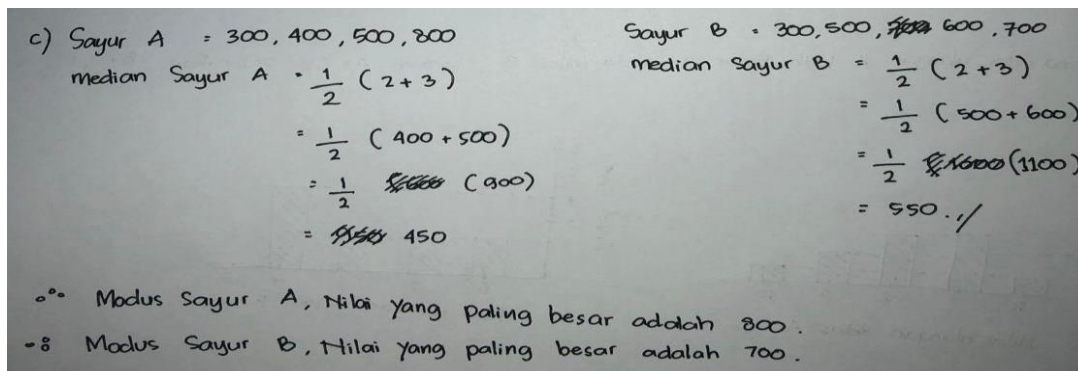 c) Sayur A = 300, 400, 500, 800
median Sayur A = 1/2 (2+3)
= 1/2 (400 + 500)
= 1/2 (900)
= 450
Sayur B = 300, 500, 600, 700
median Sayur B = 1/2 (2+3)
= 1/2 (500 + 600)
= 1/2 (1100)
= 550.//
∴ Modus Sayur A, Nilai yang paling besar adalah 800.
∴ Modus Sayur B, Nilai yang paling besar adalah 700.